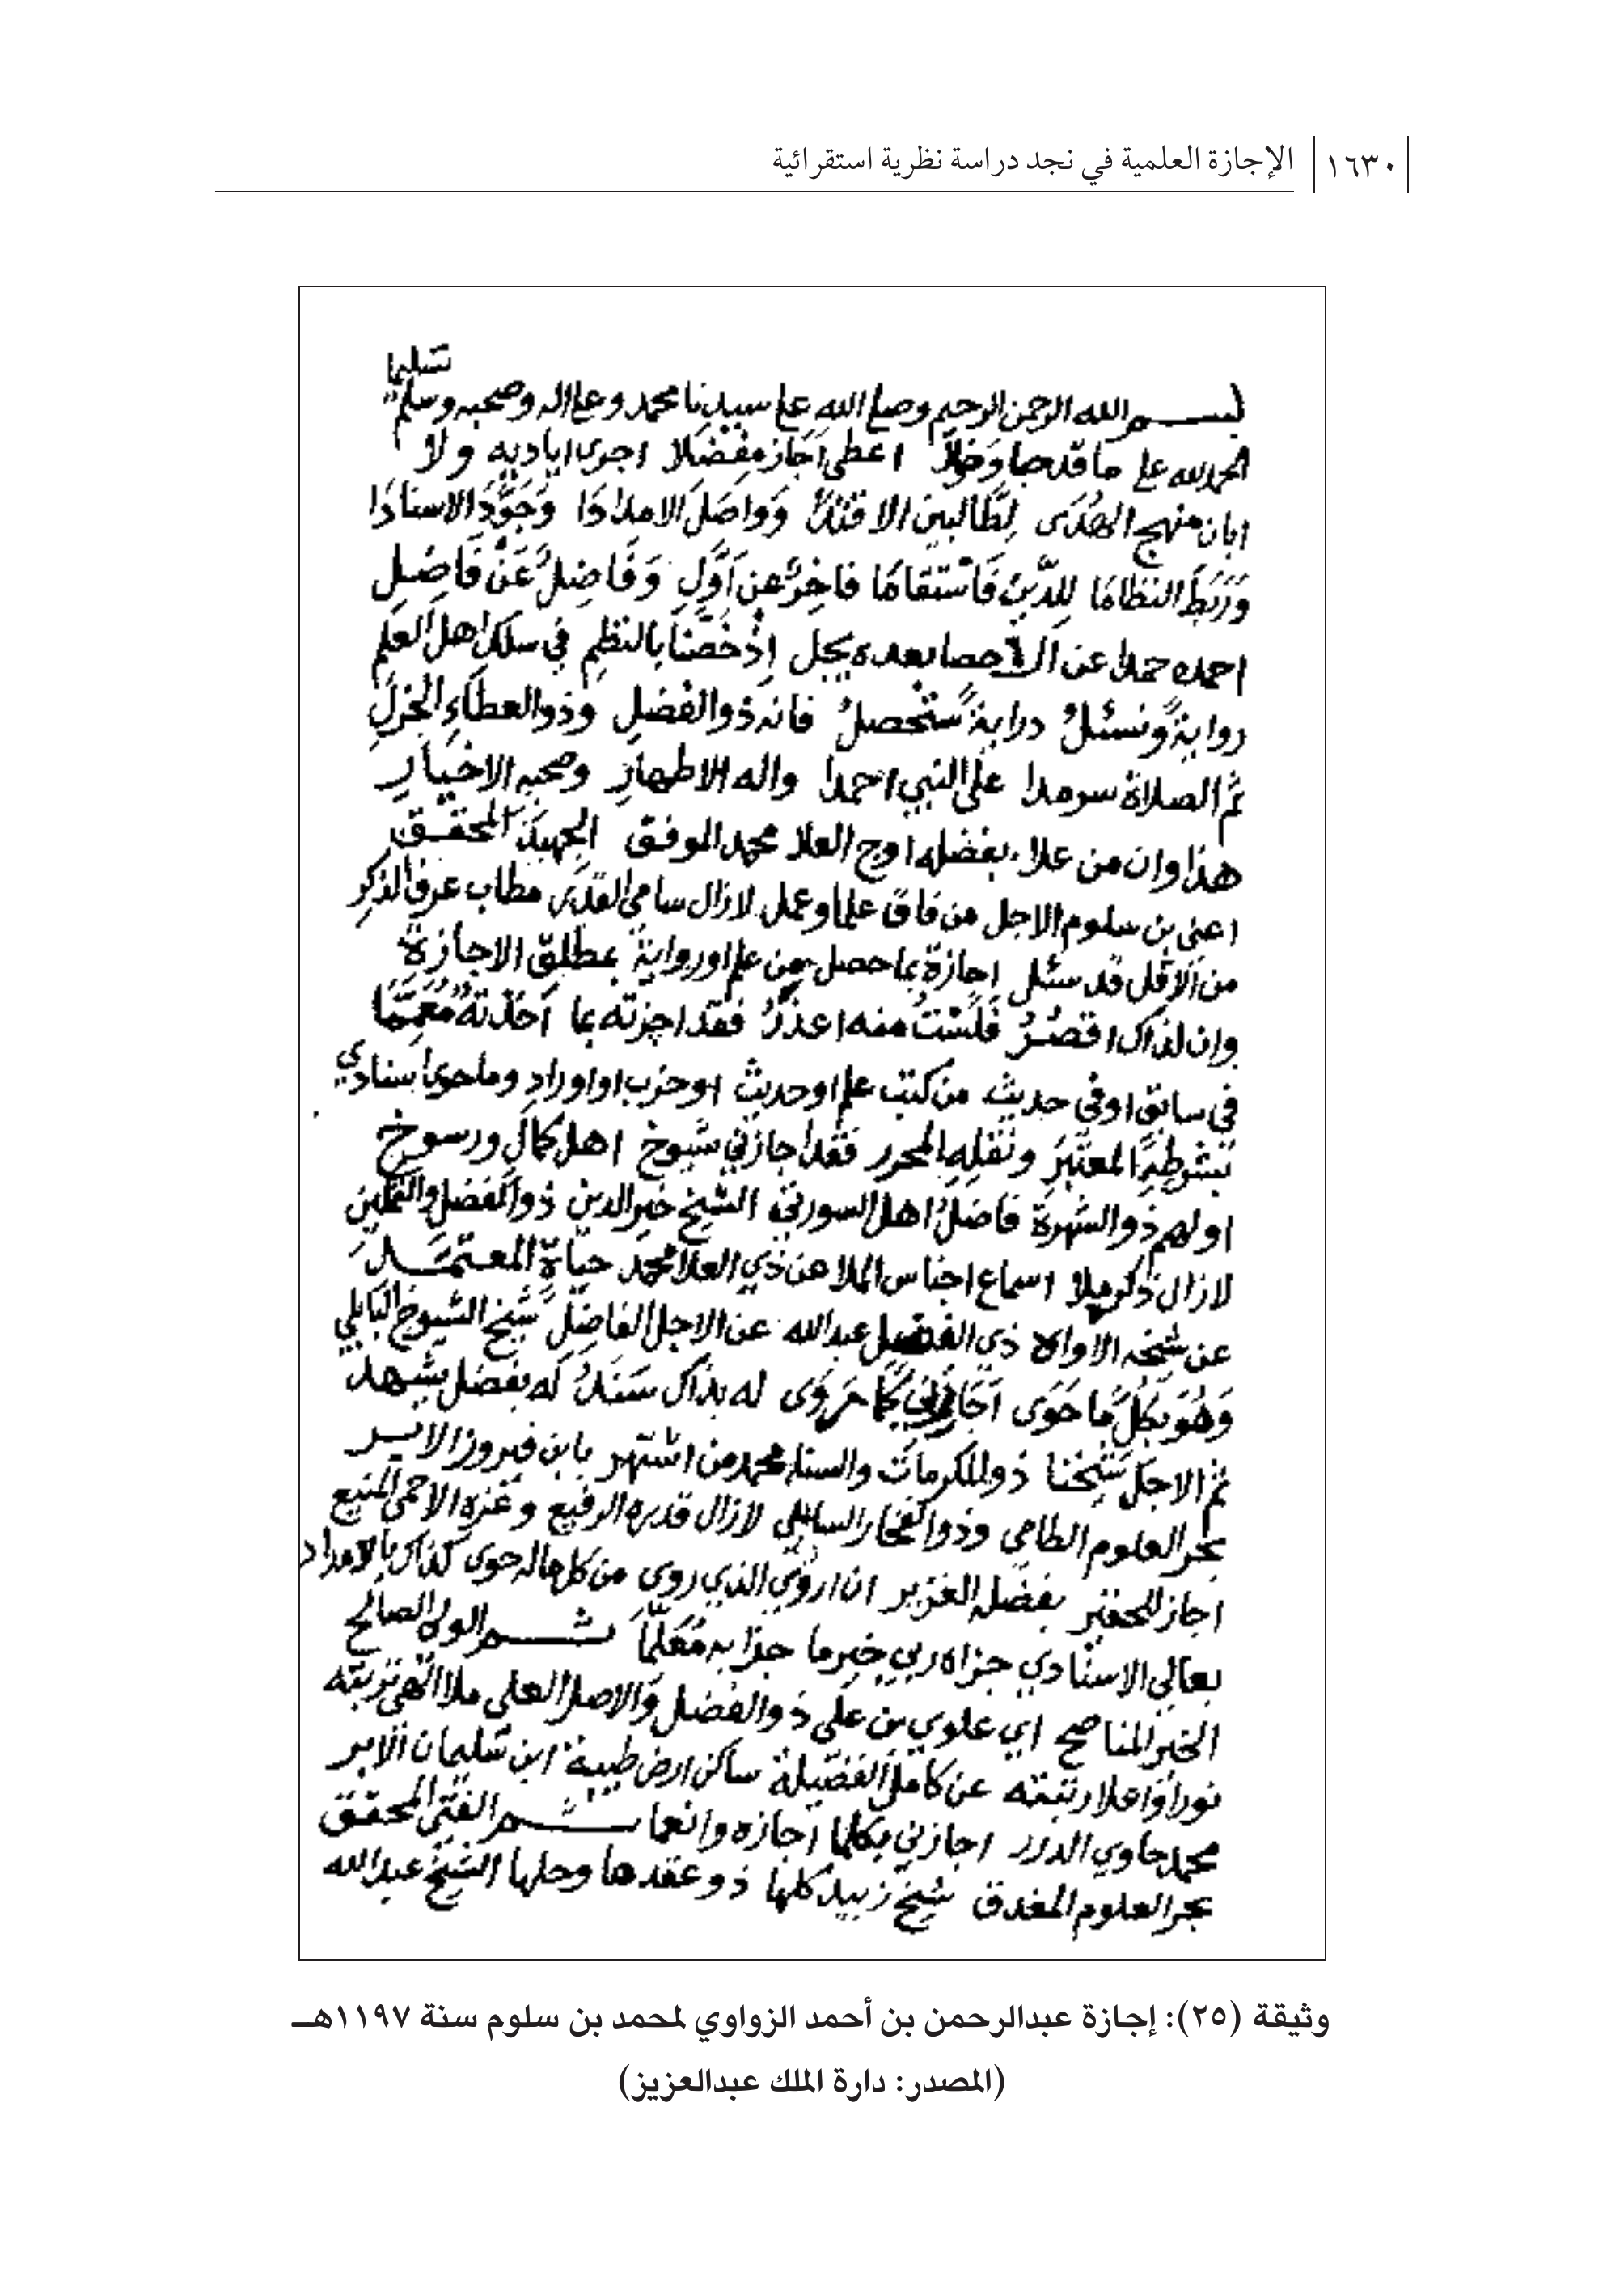 ١٦٣٠ الإجازة العلمية في نجد دراسة نظرية استقرائية
تسليما
بسم الله الرحمن الرحيم وصلى الله على سيدنا محمد وعلى اله وصحبه وسلم
الحمد لله على ما قد اعطى اجاز مفضلا اجرى اياديه ولا
ابان منهج الهدى لطالبين الاقتدا وواصل الامدادا وجود الاسنادا
وربط النظاما للدين فاستقاما فاخر عن اول وفاضل عن فاضل
احمده حمدا عن الاحصا بعده يجل اذ خصنا بالنظم في سلك اهل العلم
رواية ونسئل دراية ستحصل فانه ذو الفضل وذو العطاء الجزل
ثم الصلاة سرمدا على النبي احمدا واله الاطهار وصحبه الاخيار
هذا وان من علا بفضله اوج العلا محمد الموفق الجهبذ المحقق
اعني بن سلوم الاجل من فاق علما وعمل لازال سامي القدر مطاب عرف الذكر
من الاقل قد سئل اجازة بما حصل من علم او رواية بمطلق الاجازة
وان لذاك اقصر فلست منه اعذر فقد اجزته بما اخذته معمما
في سابق او في حديث من كتب علم او حديث او حزب او اوراد وما حوى اسنادي
بشرطه المعتبر ونقله المحرر فقد اجازني شيوخ اهل كمال ورسوخ
اولهم ذو الشهرة فاضل اهل السورتي الشيخ خير الدين ذو الفضل والتمكين
لازال ذكره ملا اسماع اجناس الملا عن ذي العلا محمد حياة المعتمد
عن شيخه الاواه ذي الفضل عبد الله عن الاجل الفاضل شيخ الشيوخ البابلي
وهو بكل ما حوى اجازني كما روى له بذاك سند له بفضل يشهد
ثم الاجل شيخنا ذو المكرمات والسنا محمد من اشتهر بابن فيروز الابر
بحر العلوم الطامي وذو الفخار السامي لازال قدره الرفيع وعزه الاحمى المنيع
اجاز للحقير بفضله الغزير ان اروي الذي روى من كل ما له حوى كذاك بالامداد
بعالي الاسنادي جزاه ربي خير ما جزا به معلما ثم الولي الصالح
الخير المناصح اي علوي بن علي ذو الفضل والاصل العلي ملا الهي تربته
نورا واعلا رتبته عن كامل الفضيلة ساكن ارض طيبة ابن سليمان الابر
محمد حاوي الدرر اجازني بكلما اجازه وانعما ثم الفتى المحقق
بحر العلوم المغدق شيخ زبيد كلها ذو عقدها وحلها الشيخ عبد الله
وثيقة (٢٥): إجازة عبدالرحمن بن أحمد الزواوي لمحمد بن سلوم سنة ١١٩٧هـ
(المصدر: دارة الملك عبدالعزيز)